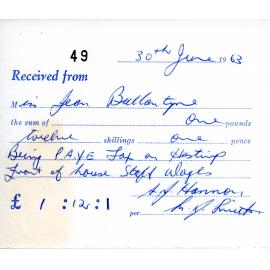 49 30th June 1963
Received from
Miss Jean Ballantyne
the sum of one pounds
twelve shillings one pence
Being P.A.Y.E Tax on Hastings
front of house Staff Wages
£ 1 : 12 : 1
per